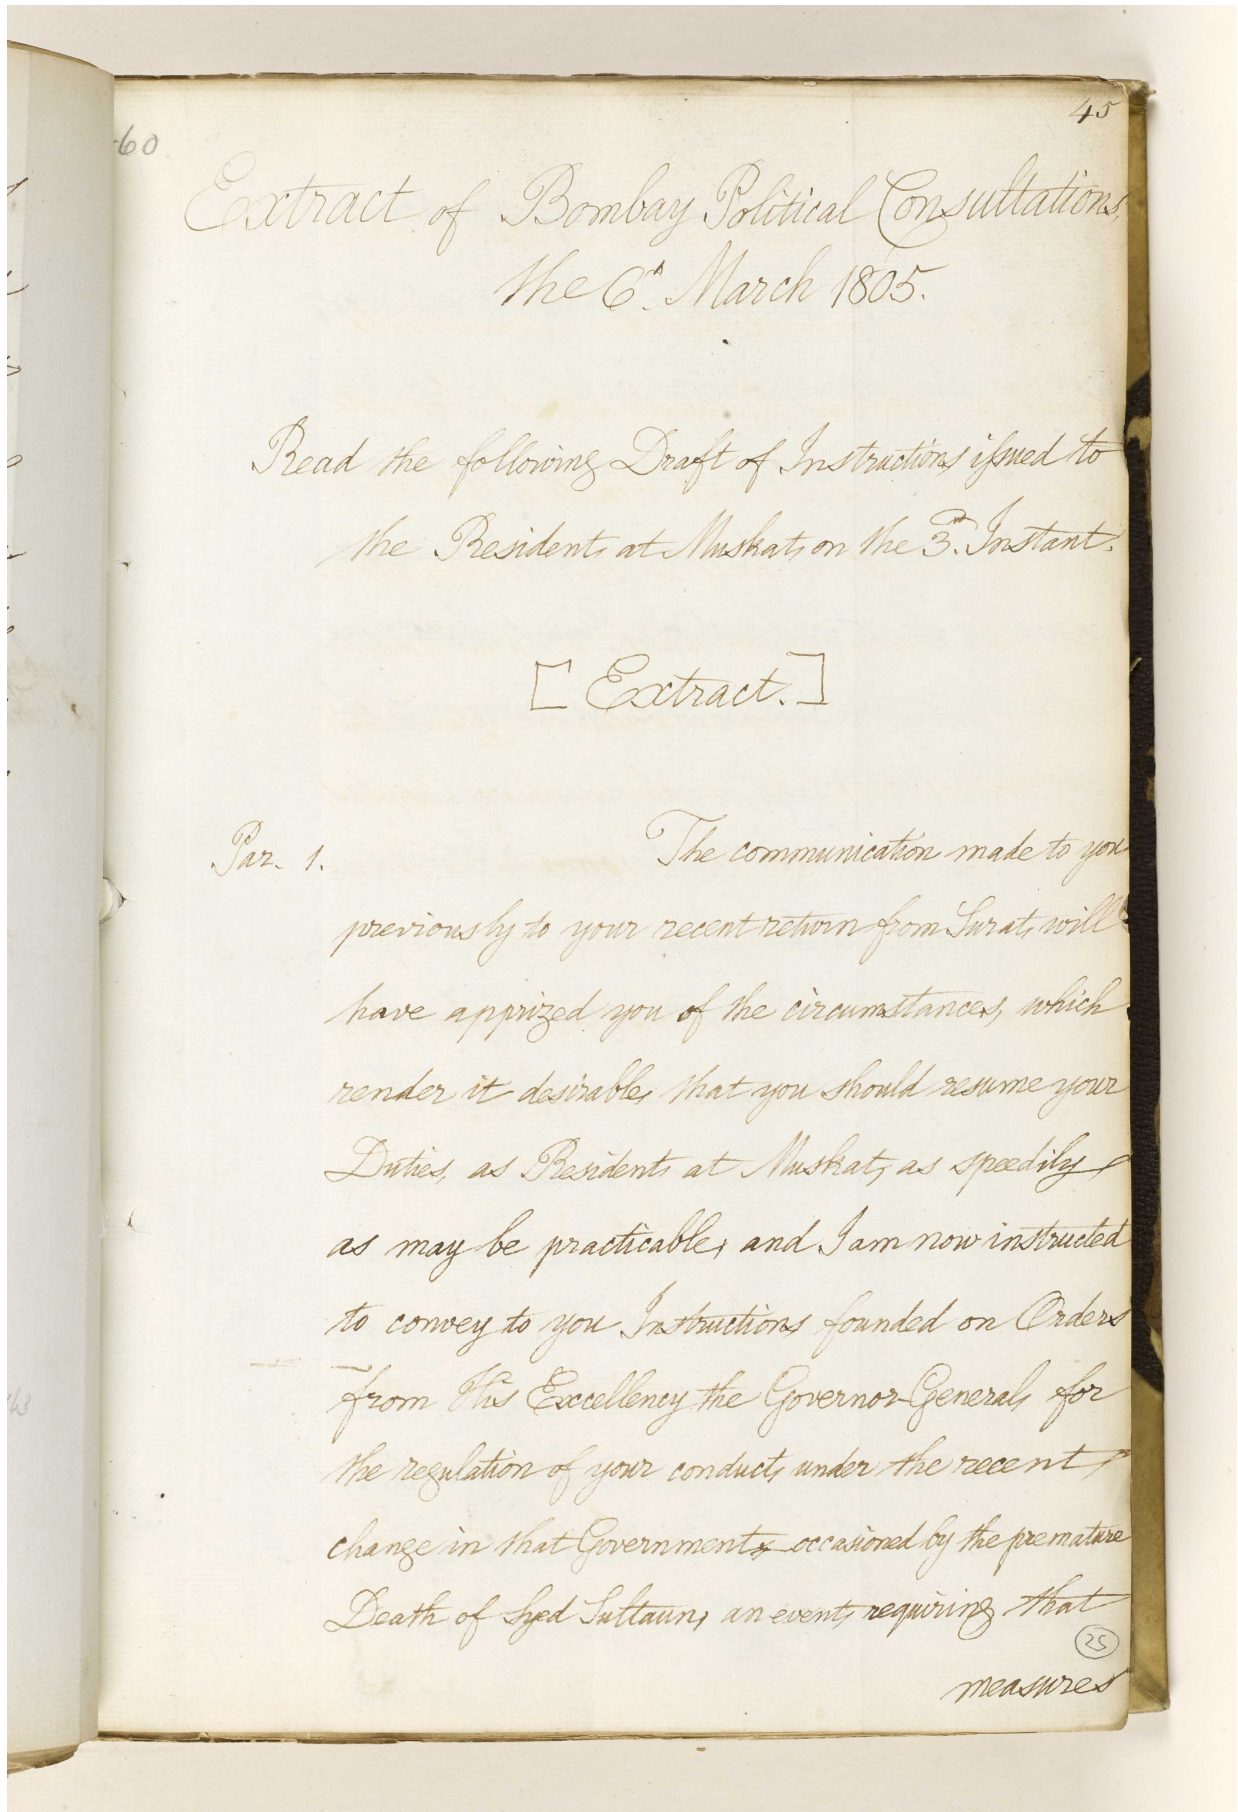 45
60
Extract of Bombay Political Consultations,
the 6th March 1805.
Read the following Draft of Instructions issued to
the Resident at Muskat, on the 3d. Instant.
[Extract.]
Par. 1. The communication made to you
previously to your recent return from Surat, will
have apprized you of the circumstances, which
render it desirable, that you should resume your
Duties, as Resident, at Muskat, as speedily
as may be practicable, and I am now instructed
to convey to you Instructions founded on Orders
from His Excellency the Governor-General, for
the regulation of your conduct, under the recent
change in that Government, occasioned by the premature
Death of Syed Sultaun, an event, requiring that
25
measures